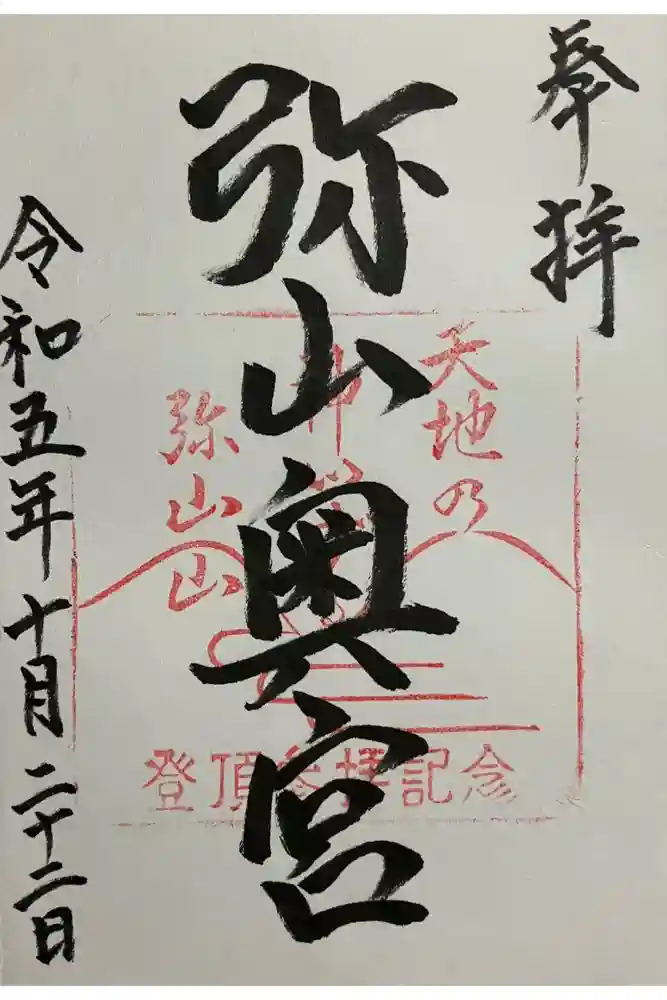 奉拝
弥山奥宮
令和五年十月二十二日
天地乃
弥山山
登頂参拝記念